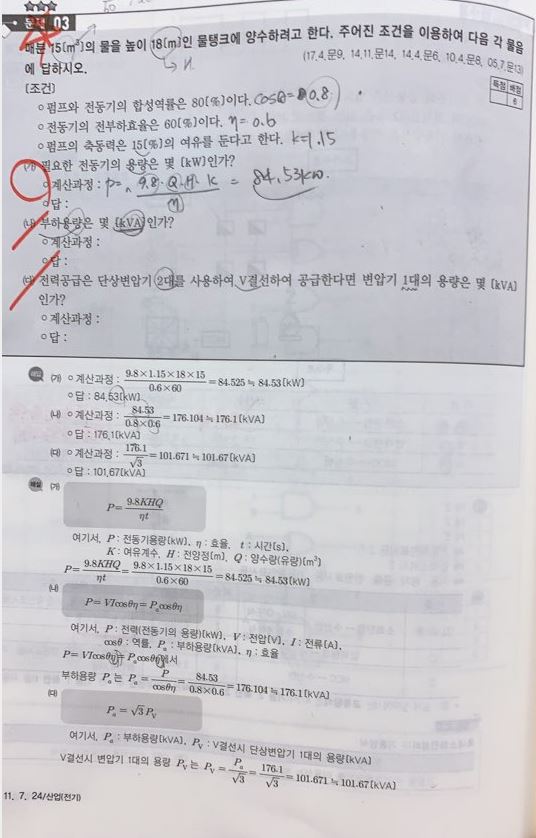 문제 03
매분 15[m³]의 물을 높이 18[m]인 물탱크에 양수하려고 한다. 주어진 조건을 이용하여 다음 각 물음
에 답하시오.
(17.4.문9, 14.11.문14, 14.4.문6, 10.4.문8, 05.7.문13)
→ H
[조건]
득점 배점
6
○펌프와 전동기의 합성역률은 80[%]이다. cosθ = 0.8
○전동기의 전부하효율은 60[%]이다. η = 0.6
○펌프의 축동력은 15[%]의 여유를 둔다고 한다. k=1.15
(가) 필요한 전동기의 용량은 몇 [kW]인가?
○계산과정 : P= 9.8·Q·H·K / η = 84.53kW
○답 :
(나) 부하용량은 몇 [kVA]인가?
○계산과정 :
○답 :
(다) 전력공급은 단상변압기 2대를 사용하여 V결선하여 공급한다면 변압기 1대의 용량은 몇 [kVA]
인가?
○계산과정 :
○답 :
해답 (가) ○계산과정 : 9.8×1.15×18×15 / 0.6×60 = 84.525 ≒ 84.53[kW]
○답 : 84.53[kW]
(나) ○계산과정 : 84.53 / 0.8×0.6 = 176.104 ≒ 176.1[kVA]
○답 : 176.1[kVA]
(다) ○계산과정 : 176.1 / √3 = 101.671 ≒ 101.67[kVA]
○답 : 101.67[kVA]
해설 (가)
P = 9.8KHQ / ηt
여기서, P : 전동기용량[kW], η : 효율, t : 시간[s],
K : 여유계수, H : 전양정[m], Q : 양수량(유량)[m³]
P = 9.8KHQ / ηt = 9.8×1.15×18×15 / 0.6×60 = 84.525 ≒ 84.53[kW]
(나)
P = VIcosθη = Pₐcosθη
여기서, P : 전력(전동기의 용량)[kW], V : 전압[V], I : 전류[A],
cosθ : 역률, Pₐ : 부하용량[kVA], η : 효율
P = VIcosθη = Pₐcosθη에서
부하용량 Pₐ는 Pₐ = P / cosθη = 84.53 / 0.8×0.6 = 176.104 ≒ 176.1[kVA]
(다)
Pₐ = √3 P_V
여기서, Pₐ : 부하용량[kVA], P_V : V결선시 단상변압기 1대의 용량[kVA]
V결선시 변압기 1대의 용량 P_V 는 P_V = Pₐ / √3 = 176.1 / √3 = 101.671 ≒ 101.67[kVA]
11. 7. 24/산업(전기)